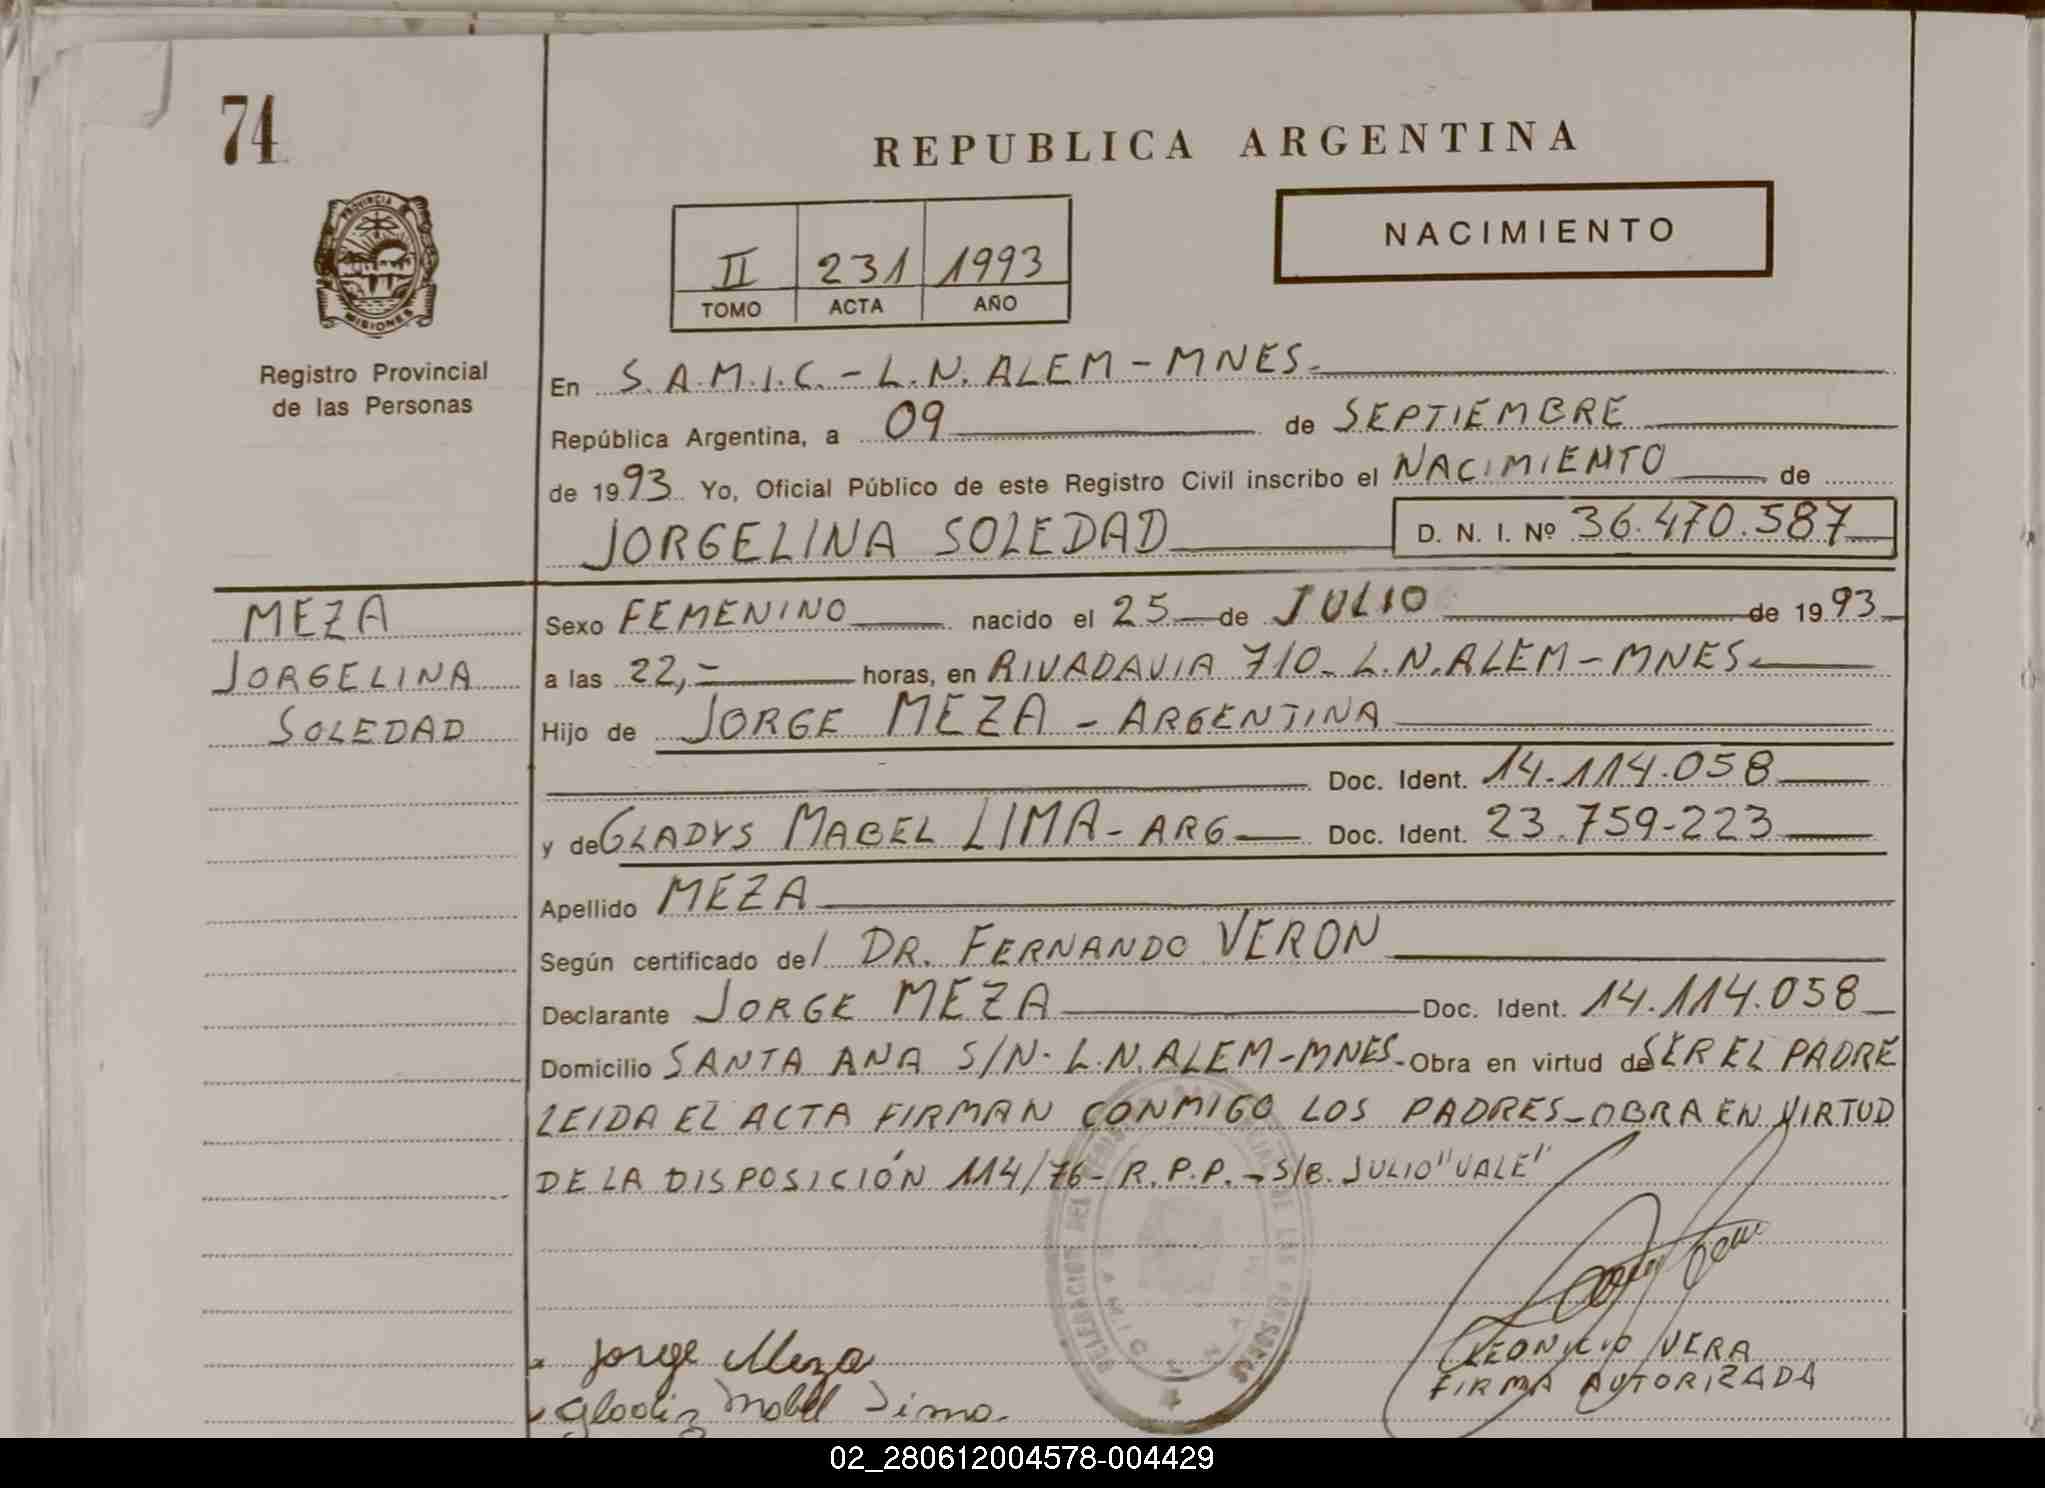 74
REPUBLICA ARGENTINA
PROVINCIA DE
MISIONES
Registro Provincial
de las Personas
NACIMIENTO
II 231 1993
TOMO ACTA AÑO
En S.A.M.I.C. - L.N. ALEM - MNES.
República Argentina, a 09 de SEPTIEMBRE
de 1993 Yo, Oficial Público de este Registro Civil inscribo el NACIMIENTO de
JORGELINA SOLEDAD D. N. I. Nº 36.470.587
MEZA
JORGELINA
SOLEDAD
Sexo FEMENINO nacido el 25 de JULIO de 1993
a las 22,= horas, en RIVADAVIA 710- L.N. ALEM - MNES
Hijo de JORGE MEZA - ARGENTINA
Doc. Ident. 14.114.058
y de GLADYS MABEL LIMA - ARG Doc. Ident. 23.759-223
Apellido MEZA
Según certificado del DR. FERNANDO VERON
Declarante JORGE MEZA Doc. Ident. 14.114.058
Domicilio SANTA ANA S/N- L.N. ALEM-MNES- Obra en virtud de SER EL PADRE
LEIDA EL ACTA FIRMAN CONMIGO LOS PADRES-OBRA EN VIRTUD
DE LA DISPOSICIÓN 114/76- R.P.P. - S/B. JULIO "VALE"
Jorge Meza
Gladis Mabel Lima.
LEONICIO VERA
FIRMA AUTORIZADA
02_280612004578-004429